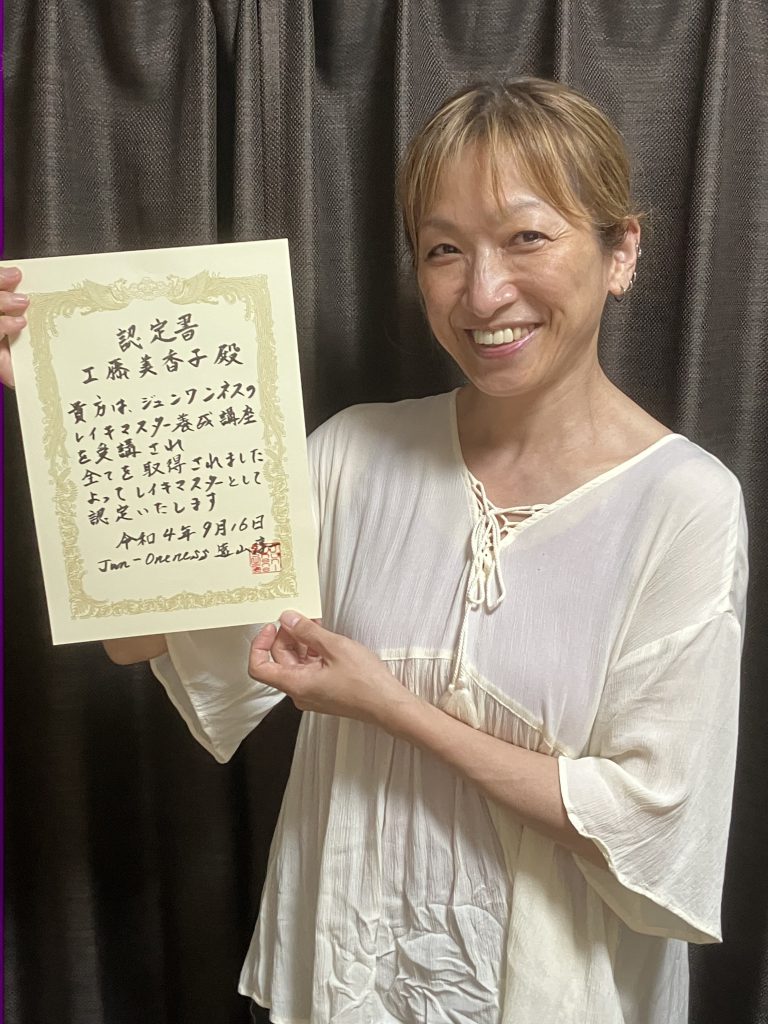 認定書
工藤美香子殿
貴方は、ジュンワンネスの
レイキマスター養成講座
を受講され
全てを取得されました
よってレイキマスターとして
認定いたします
令和4年9月16日
Jun-Oneness 遠山